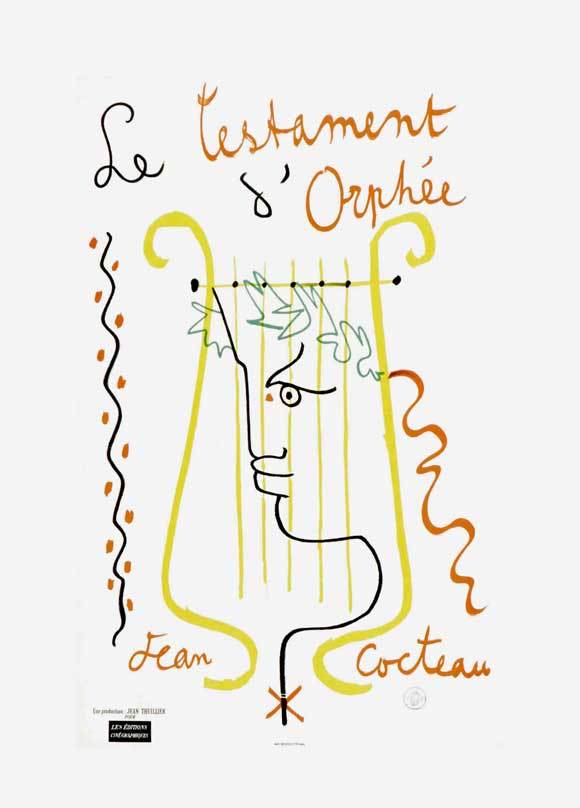 Le Testament
d'Orphée
Jean Cocteau
Une production JEAN THUILLIER
POUR
LES ÉDITIONS
CINÉGRAPHIQUES